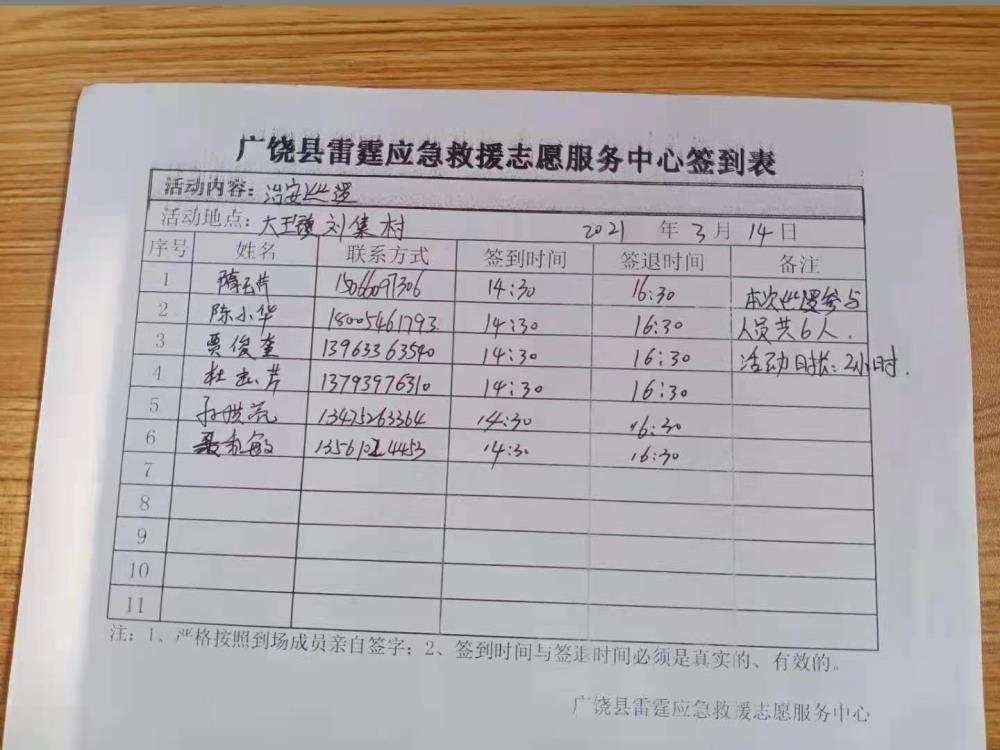 广饶县雷霆应急救援志愿服务中心签到表
活动内容：治安巡逻
活动地点：大王镇刘集村 2021 年 3 月 14 日
序号 姓名 联系方式 签到时间 签退时间 备注
1 15066097306 14:30 16:30 本次巡逻参与
2 陈小华 18005461793 14:30 16:30 人员共6人.
3 贾俊奎 13963363540 14:30 16:30 活动时长:2小时.
4 13793976310 14:30 16:30
5 13475263364 14:30 16:30
6 14:30 16:30
7
8
9
10
11
注：1、严格按照到场成员亲自签字；2、签到时间与签退时间必须是真实的、有效的。
广饶县雷霆应急救援志愿服务中心